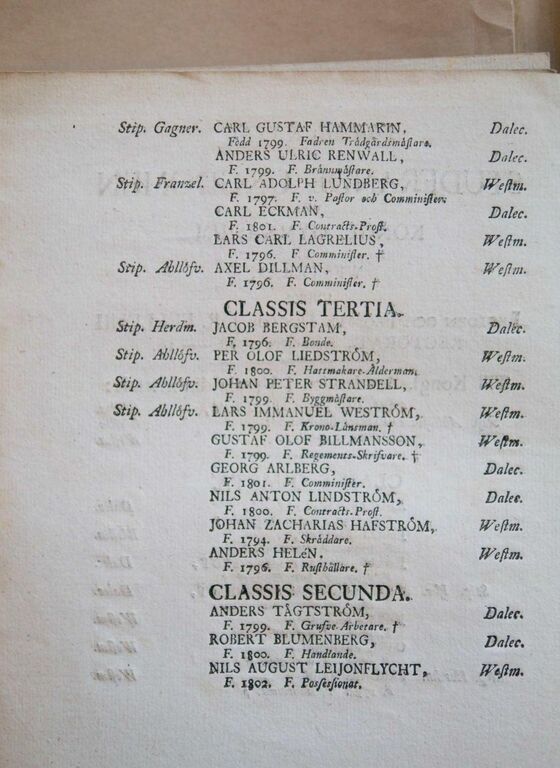 Stip. Gagner. CARL GUSTAF HAMMARIN, Dalec.
Född 1799. Fadren Trädgårdsmåstare.
ANDERS ULRIC RENWALL, Dalec.
F. 1799. F. Brånnmåstare.
Stip. Franzel. CARL ADOLPH LUNDBERG, Westm.
F. 1797. F. v. Pastor och Comminister.
CARL ECKMAN, Dalec.
F. 1801. F. Contracts-Prost.
LARS CARL LAGRELIUS, Westm.
F. 1796. F. Comminister. †
Stip. Abllöfv. AXEL DILLMAN, Westm.
F. 1796. F. Comminister. †
CLASSIS TERTIA.
Stip. Herdm. JACOB BERGSTAM, Dalec.
F. 1796. F. Bonde.
Stip. Abllöfv. PER OLOF LIEDSTRÖM, Westm.
F. 1800. F. Hattmakare-Ålderman.
Stip. Abllöfv. JOHAN PETER STRANDELL, Westm.
F. 1799. F. Byggmåstare.
Stip. Abllöfv. LARS IMMANUEL WESTRÖM, Westm.
F. 1799. F. Krono-Länsman. †
GUSTAF OLOF BILLMANSSON, Westm.
F. 1799. F. Regements-Skrifvare. †
GEORG ARLBERG, Dalec.
F. 1801. F. Comminister.
NILS ANTON LINDSTRÖM, Dalec.
F. 1800. F. Contracts-Prost.
JOHAN ZACHARIAS HAFSTRÖM, Westm.
F. 1794. F. Skräddare.
ANDERS HELéN. Westm.
F. 1796. F. Rusthållare. †
CLASSIS SECUNDA.
ANDERS TÅGTSTRÖM, Dalec.
F. 1799. F. Grufve-Arbetare. †
ROBERT BLUMENBERG, Dalec.
F. 1800. F. Handlande.
NILS AUGUST LEIJONFLYCHT, Westm.
F. 1802. F. Possessionat.